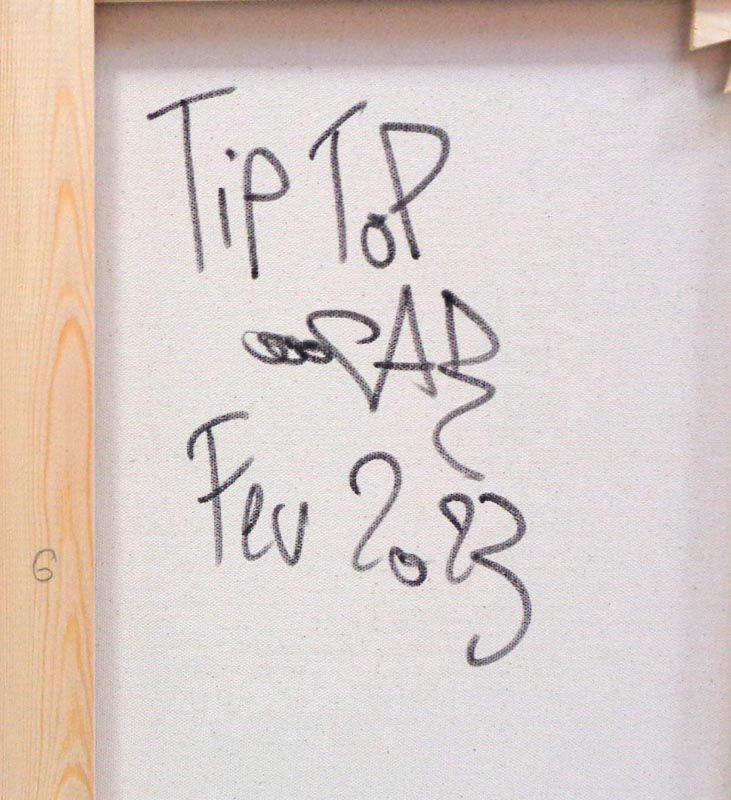 Tip Top
CAR
Fev 2023
6